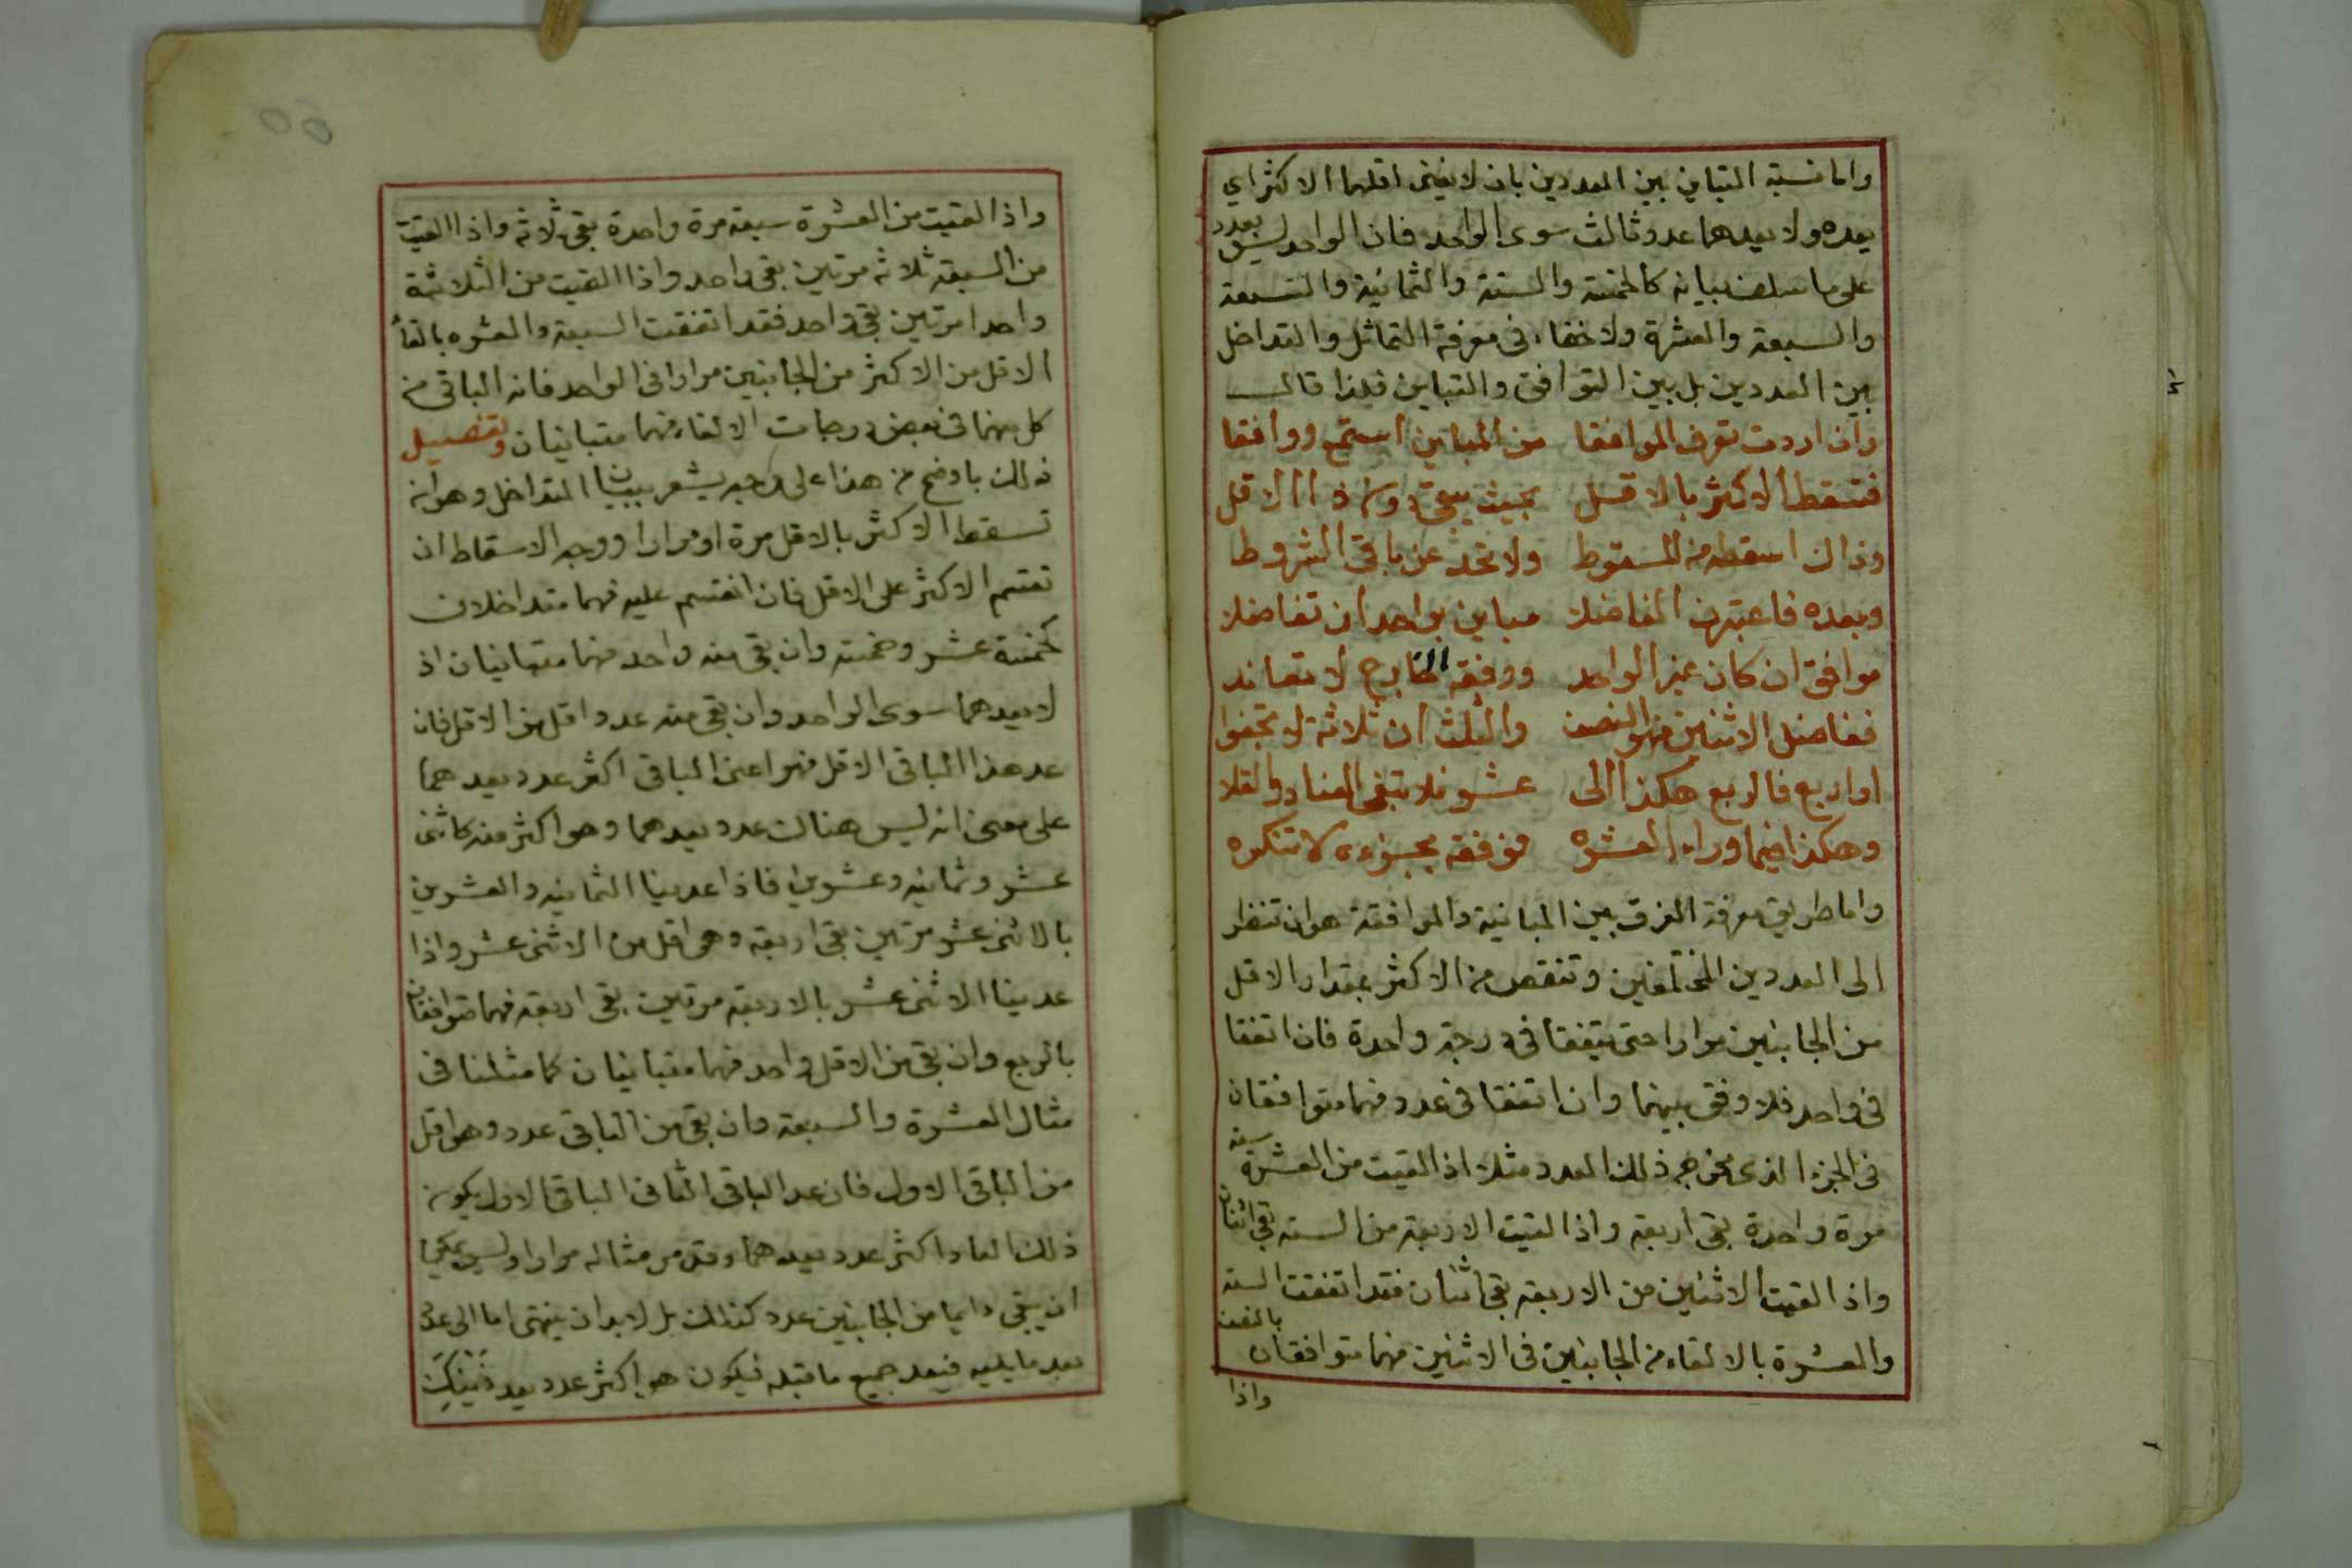 واما نسبة التباين بين العددين بان لا يفنى اقلهما الاكثر اي
يعده ولا يعدهما عدد ثالث سوى الواحد فان الواحد ليس بعدد
على ما سلف بيانه كالخمسة والستة والثمانية والتسعة
والسبعة والعشرة ولا خفاء في معرفة التماثل والتداخل
بين العددين بل بين التوافق والتباين فلذا قال
وان اردت تعرف الموافقا من المباين استمع ووافقا
فتسقط الاكثر بالاقل بحيث يبقى دون ذا الاقل
وذاك اسقطه من المسقوط ولا تحد عن باقي الشروط
وبعده فاعتبرن الفاضلا مباين بواحد ان تفاضلا
موافق ان كان غير الواحد ووفقه الخارج لا تعاند
ففاضل الاثنين فهو النصف والثلث ان ثلاثة لا تجفوا
او اربع فالربع هكذا الى عشر فلا تبقى العناد والقلا
وهكذا فيما وراء العشره فوفقه بجزءه لا تنكره
واما طريق معرفة الفرق بين المباينة والموافقة هو ان تنظر
الى العددين المختلفين وتنقص من الاكثر بمقدار الاقل
من الجانبين مرارا حتى يتفقا في درجة واحدة فان اتفقا
في واحد فلا وفق بينهما وان اتفقا في عدد فهما متوافقان
في الجزء الذي مخرجه ذلك العدد مثلا اذا القيت من العشرة ستة
مرة واحدة بقي اربعة واذا القيت الاربعة من الستة بقي اثنان
واذا القيت الاثنين من الاربعة بقي اثنان فقد اتفقت الستة
والعشرة بالالقاء من الجانبين في الاثنين فهما متوافقان بالنصف
واذا
واذا القيت من العشرة سبعة مرة واحدة بقي ثلاثة واذا القيت
من السبعة ثلاثة مرتين بقي واحد واذا القيت من الثلاثة
واحدا مرتين بقي واحد فقد اتفقت السبعة والعشره بالقاء
الاقل من الاكثر من الجانبين مرارا في الواحد فانه الباقي من
كل منهما في بعض درجات الالقاء فهما متباينان وتفصيل
ذلك باوضح من هذا على وجه يشعر ببيان المتداخل وهو انه
تسقط الاكثر بالاقل مرة او مرارا ووجه الاسقاط ان
تقسم الاكثر على الاقل فان انقسم عليه فهما متداخلان
كخمسة عشر وخمسة وان بقي منه واحد فهما متباينان اذ
لا يعدهما سوى الواحد وان بقي منه عدد اقل من الاقل فان
عد هذا الباقي الاقل فهو اعنى الباقي اكثر عدد يعدهما
على معنى انه ليس هناك عدد يعدهما وهو اكثر منه كاثنى
عشر وثمانية وعشرين فاذا عدينا الثمانية والعشرين
بالاثنى عشر مرتين بقي اربعة وهي اقل من الاثنى عشر واذا
عدينا الاثنى عشر بالاربعة مرتين بقي اربعة فهما متوافقان
بالربع وان بقي من الاقل واحد فهما متباينان كما مثلنا في
مثال العشرة والسبعة وان بقي من الباقي عدد وهو اقل
من الباقي الاول فان عد الباقي الثاني الباقي الاول يكون
ذلك العاد اكثر عدد يعدهما وقد مر مثاله مرارا وليس يمكن
ان يبقى دايما من الجانبين عدد كذلك بل لا بد ان ينتهى اما الى عدد
يعد ما يليه فيعد جميع ما قبله فيكون هو اكثر عدد يعد ذينك